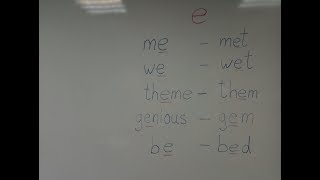 e
me – met
we – wet
theme – them
genious – gem
be – bed